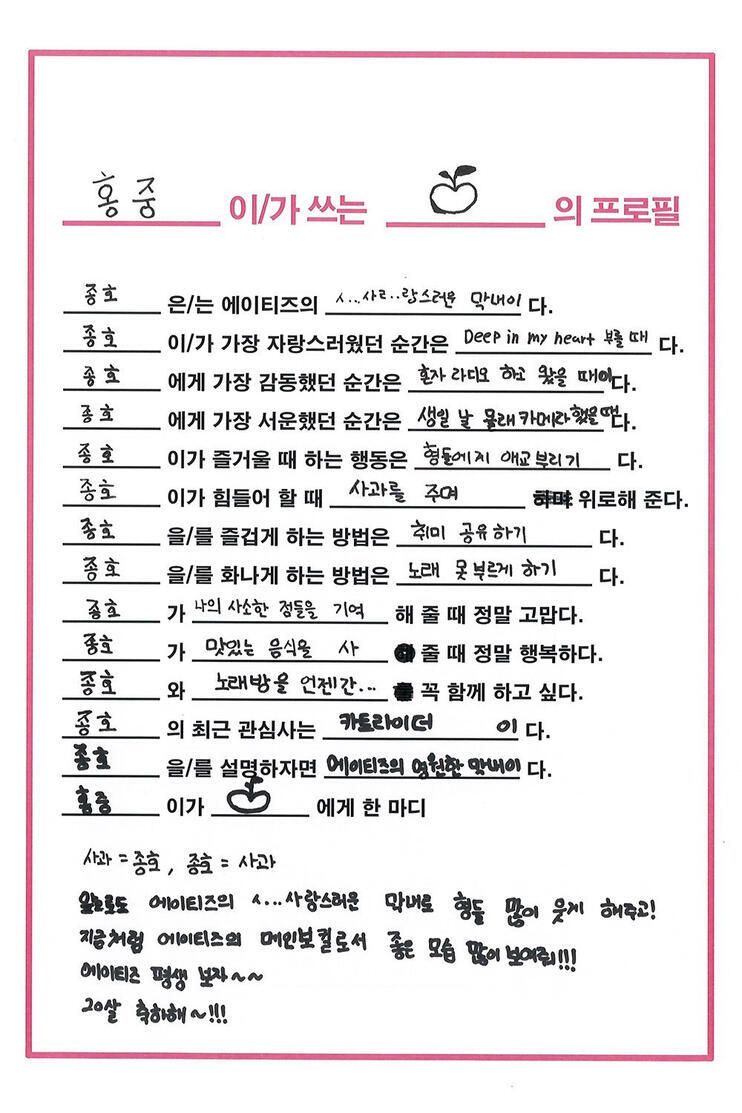 홍중 이/가 쓰는 의 프로필
종호 은/는 에이티즈의 ㅅ...사르..랑스러운 막내이 다.
종호 이/가 가장 자랑스러웠던 순간은 Deep in my heart 부를 때 다.
종호 에게 가장 감동했던 순간은 혼자 라디오 하고 왔을 때이다.
종호 에게 가장 서운했던 순간은 생일 날 몰래카메라했을때다.
종호 이가 즐거울 때 하는 행동은 형들에게 애교부리기 다.
종호 이가 힘들어 할 때 사과를 주며 위로해 준다.
종호 을/를 즐겁게 하는 방법은 취미 공유하기 다.
종호 을/를 화나게 하는 방법은 노래 못부르게 하기 다.
종호 가 나의 사소한 점들을 기억 해 줄 때 정말 고맙다.
종호 가 맛있는 음식을 사 줄 때 정말 행복하다.
종호 와 노래방을 언젠간... 꼭 함께 하고 싶다.
종호 의 최근 관심사는 카트라이더 이 다.
종호 을/를 설명하자면 에이티즈의 영원한 막내이 다.
홍중 이가 에게 한 마디
사과 = 종호, 종호 = 사과
앞으로도 에이티즈의 ㅅ...사랑스러운 막내로 형들 많이 웃게 해주고!
지금처럼 에이티즈의 메인보컬로서 좋은 모습 많이 보여줘!!!
에이티즈 평생 보자~~
20살 축하해~!!!